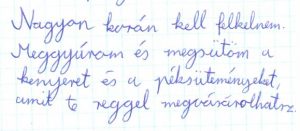 Nagyon korán kell felkelnem.
Meggyúrom és megsütöm a
kenyeret és a péksüteményeket,
amit te reggel megvásárolhatsz.